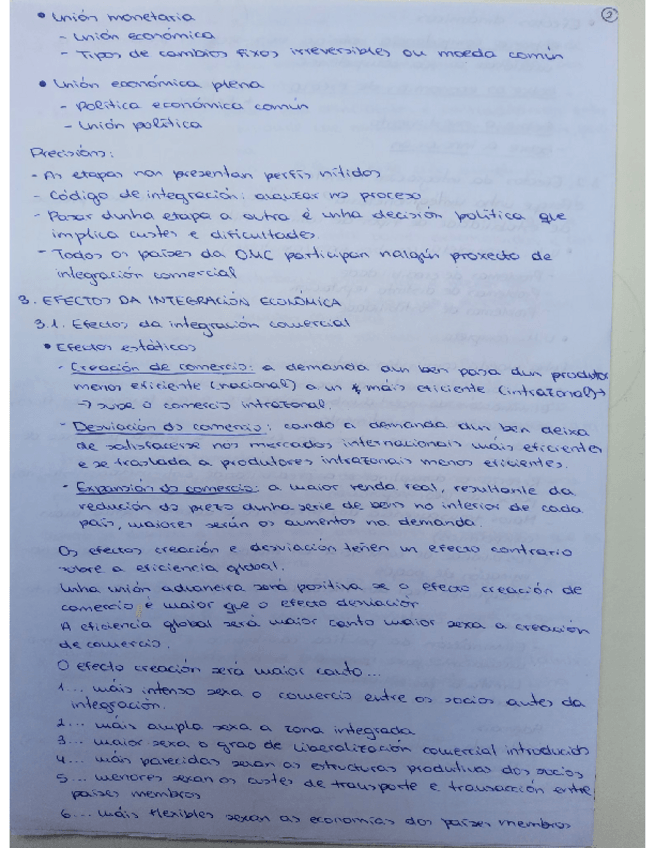 2
• Unión monetaria
- Unión económica
- Tipos de cambios fixos irreversibles ou moeda común
• Unión económica plena
- Política económica común
- Unión política
Precisións:
- As etapas non presentan perfís nítidos
- Código de integración: avanzar no proceso
- Pasar dunha etapa a outra é unha decisión política que
implica custes e dificultades
- Todos os países da OMC participan nalgún proxecto de
integración comercial
3. EFECTOS DA INTEGRACIÓN ECONÓMICA
3.1. Efectos da integración comercial
• Efectos estáticos
- Creación de comercio: a demanda dun ben pasa dun produtor
menos eficiente (nacional) a un máis eficiente (intrazonal) →
→ sube o comercio intrazonal.
- Desviación do comercio: cando a demanda dun ben deixa
de satisfacerse nos mercados internacionais máis eficientes
e se traslada a produtores intrazonais menos eficientes.
- Expansión do comercio: a maior renda real, resultante da
redución do prezo dunha serie de bens no interior de cada
país, maiores serán os aumentos na demanda
Os efectos creación e desviación teñen un efecto contrario
sobre a eficiencia global.
Unha unión aduaneira será positiva se o efecto creación de
comercio é maior que o efecto desviación
A eficiencia global será maior canto maior sexa a creación
de comercio.
O efecto creación será maior canto...
1... máis intenso sexa o comercio entre os socios antes da
integración.
2... máis ampla sexa a zona integrada
3... maior sexa o grao de liberalización comercial introducido
4... máis parecidas sexan as estructuras produtivas dos socios
5... menores sexan os custes de transporte e transacción entre
países membros
6... máis flexibles sexan as economías dos países membros